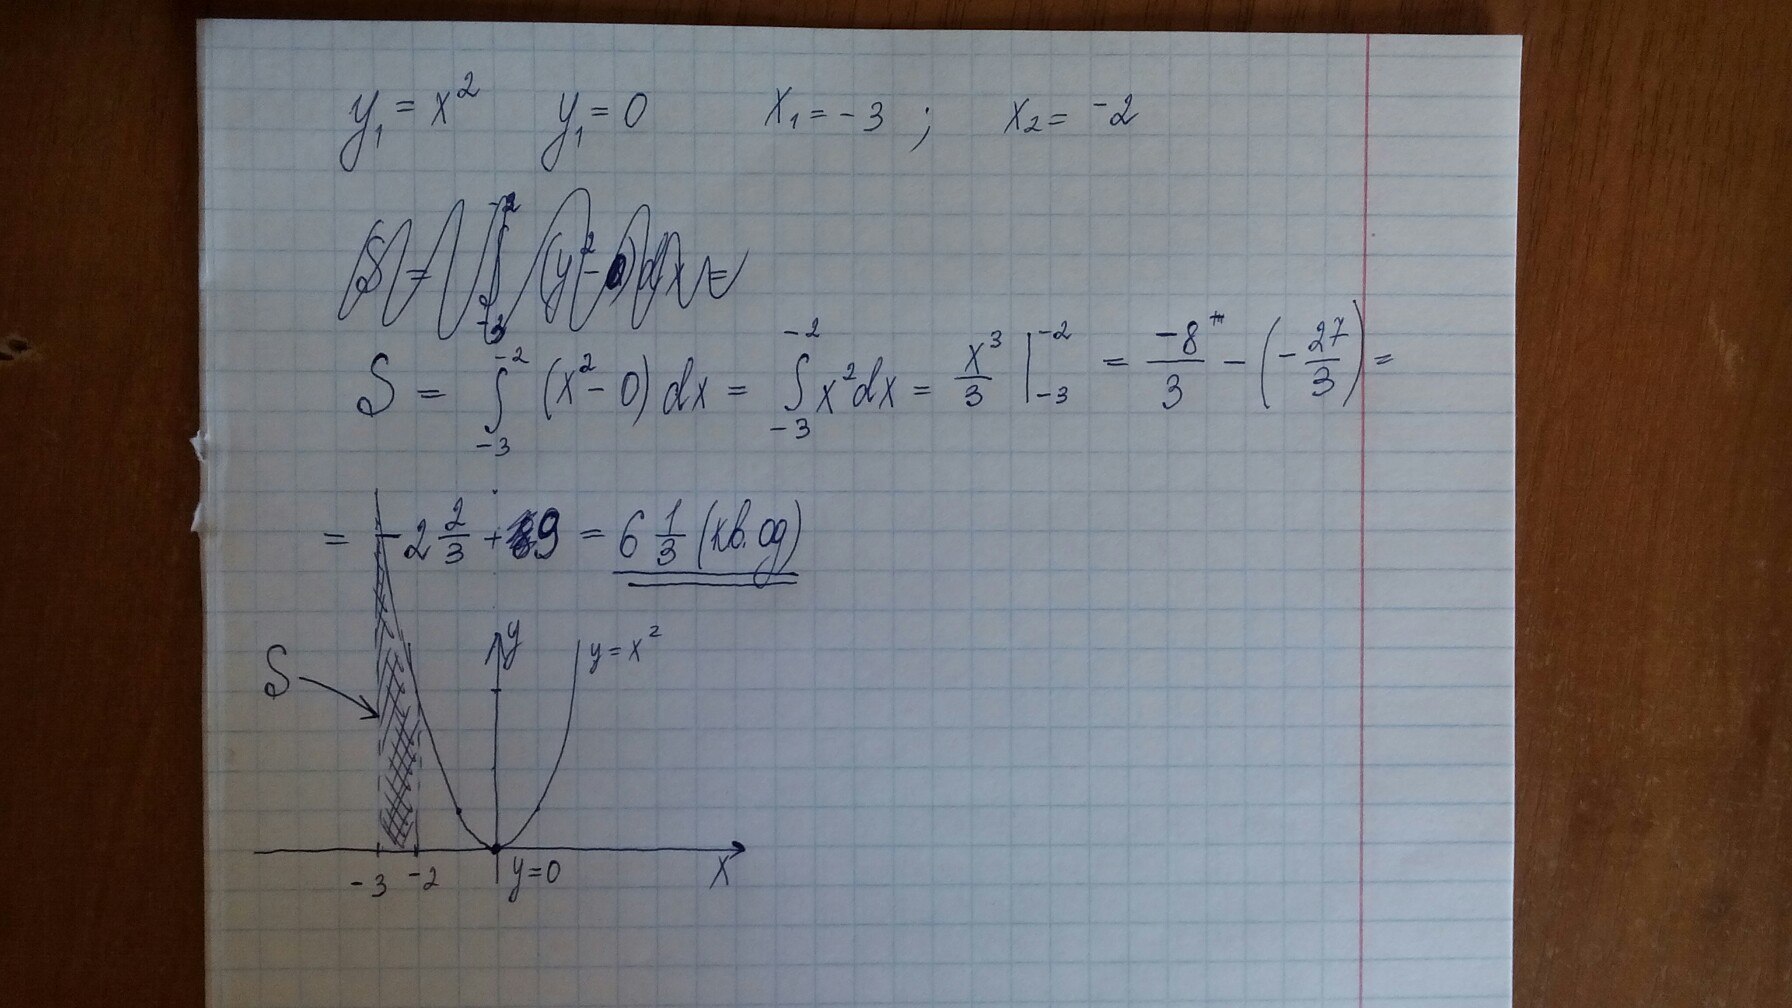 y₁ = x² y₁ = 0 x₁ = -3 ; x₂ = -2
S = ∫₋₃⁻² (y² - 0) dx =
S = ∫₋₃⁻² (x² - 0) dx = ∫₋₃⁻² x² dx = x³/3 |₋₃⁻² = -8/3 - (-27/3) =
= -2 2/3 + 9 = 6 1/3 (кв. од)
y
y = x²
S
-3 -2 y=0 x